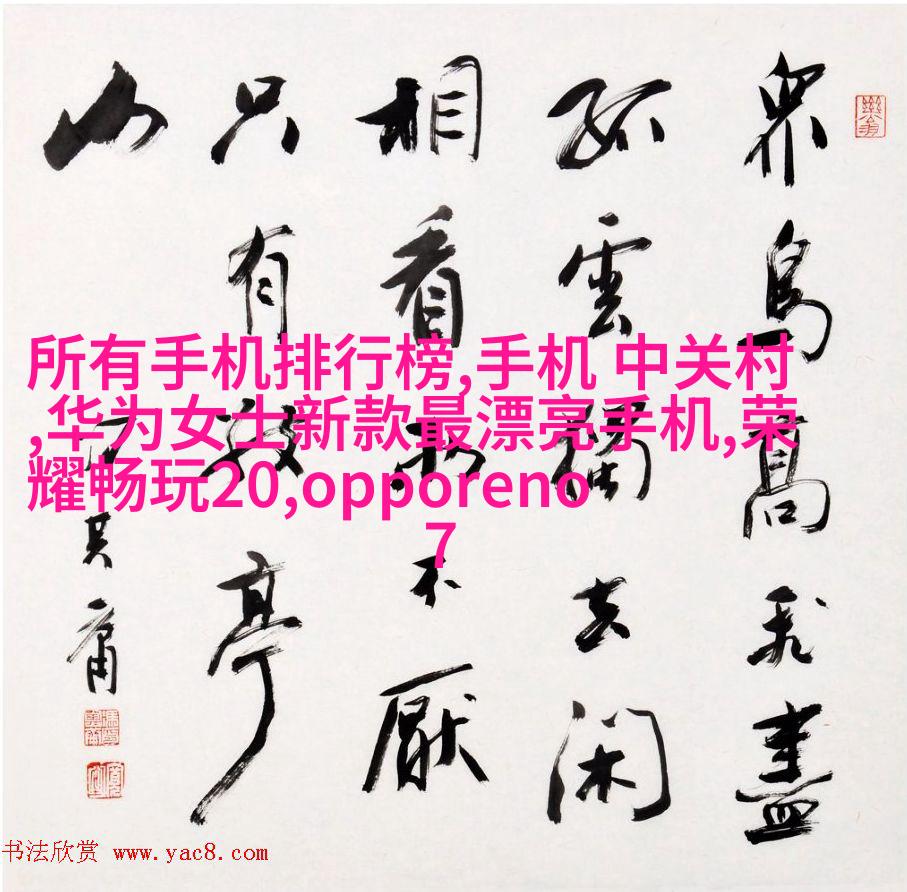 眾鳥高飛盡
孤雲獨去閑
相看兩不厭
只有敬亭
山
其庸
所有手机排行榜,手机 中关村
,华为女士新款最漂亮手机,荣
耀畅玩20,opporeno
7
书法欣赏 www.yac8.com